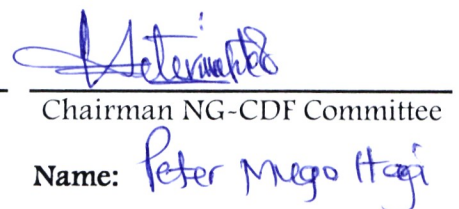 Chairman NG-CDF Committee
Name: Peter Mugo